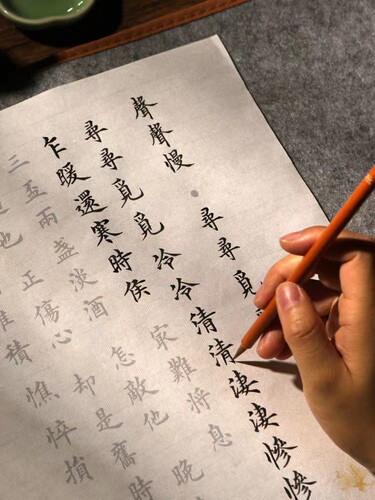 聲聲慢 尋尋覓
尋尋覓覓冷冷清清淒淒慘慘
乍暖還寒時侯㝡難將息
三盃兩盞淡酒怎敵他晚
也正傷心却是舊時
積憔悴損